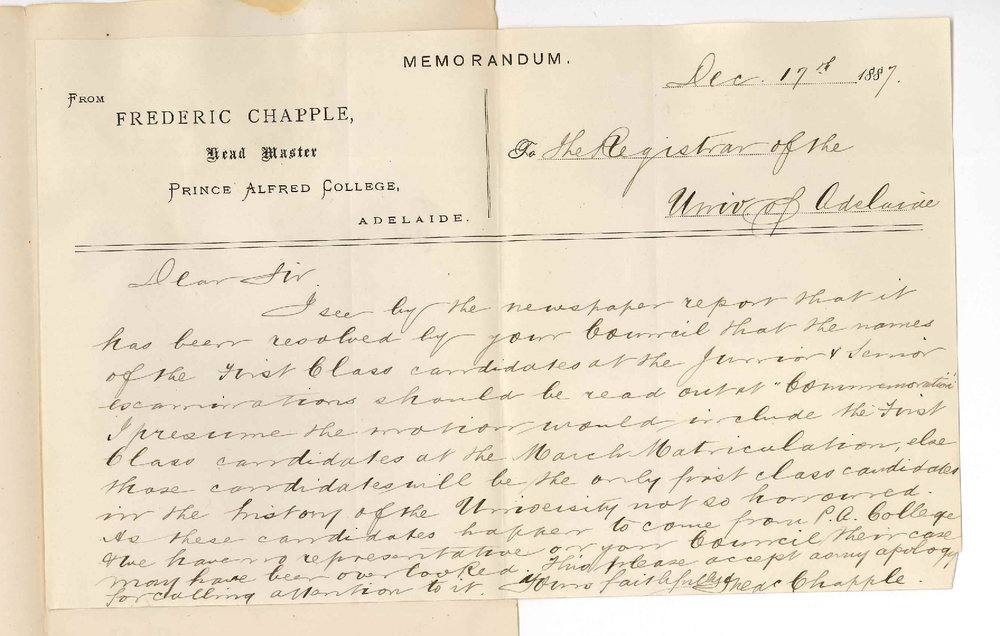 MEMORANDUM.
Dec. 17th 1887.
FROM
FREDERIC CHAPPLE,
Head Master
PRINCE ALFRED COLLEGE,
ADELAIDE.
To the Registrar of the
Univ. of Adelaide
Dear Sir
I see by the newspaper report that it
has been resolved by your Council that the names
of the First Class candidates at the Junior & Senior
examinations should be read out at "Commemoration"
I presume the motion would include the First
Class candidates at the March Matriculation, else
those candidates will be the only first class candidates
in the history of the University not so honoured.
As these candidates happen to come from P.A. College
& we have no representative on your Council their case
may have been overlooked. This please accept as my apology
for calling attention to it. Yours faithfully Fredc Chapple.